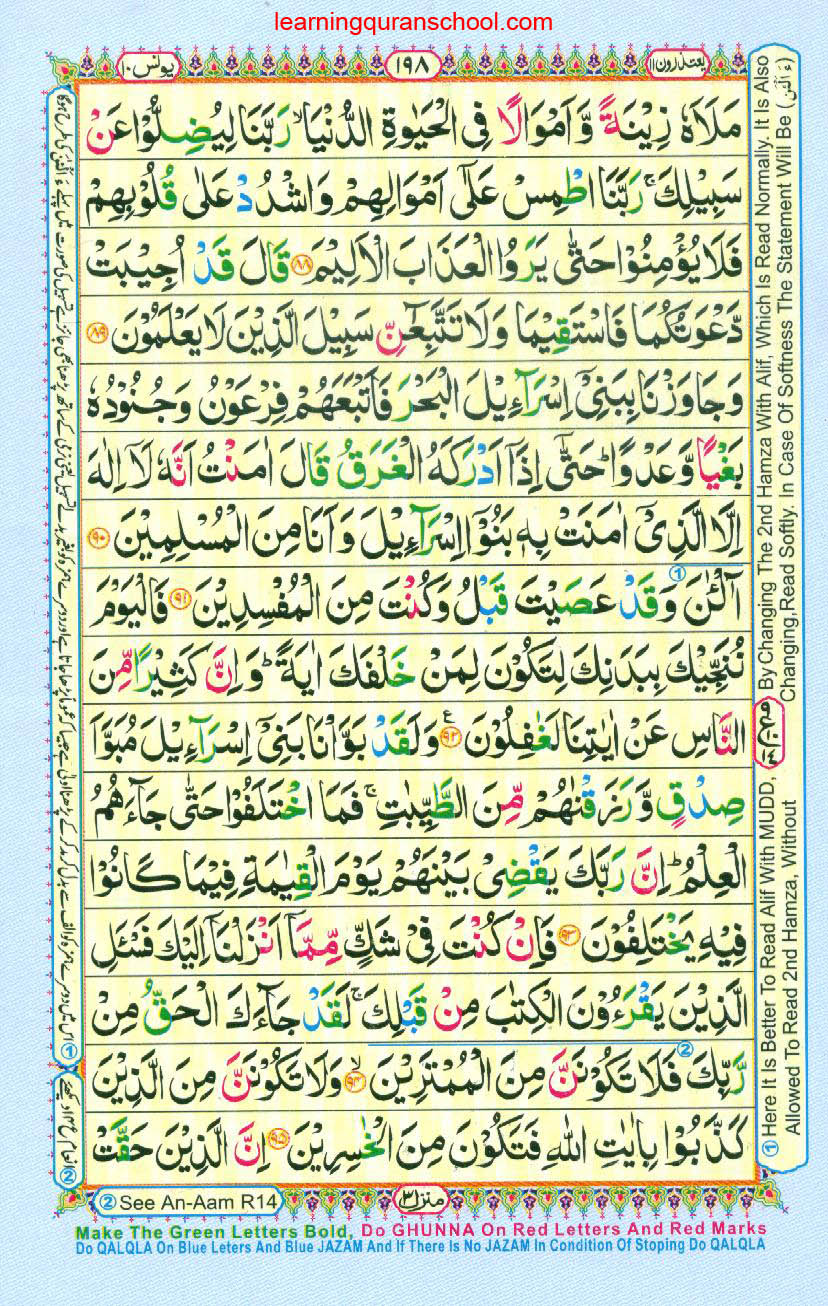 learningquranschool.com
یعتذرون ۱۱
۱۹۸
یونس ۱۰
مَلَاَهٗ زِیْنَةً وَّاَمْوَالًا فِی الْحَیٰوةِ الدُّنْیَا ۙ رَبَّنَا لِیُضِلُّوْا عَنْ
سَبِیْلِكَ ۚ رَبَّنَا اطْمِسْ عَلٰۤی اَمْوَالِهِمْ وَاشْدُدْ عَلٰی قُلُوْبِهِمْ
فَلَا یُؤْمِنُوْا حَتّٰی یَرَوُا الْعَذَابَ الْاَلِیْمَ ﴿۸۸﴾ قَالَ قَدْ اُجِیْبَتْ
دَّعْوَتُكُمَا فَاسْتَقِیْمَا وَلَا تَتَّبِعٰٓنِّ سَبِیْلَ الَّذِیْنَ لَا یَعْلَمُوْنَ ﴿۸۹﴾
وَجَاوَزْنَا بِبَنِیْۤ اِسْرَآءِیْلَ الْبَحْرَ فَاَتْبَعَهُمْ فِرْعَوْنُ وَجُنُوْدُهٗ
بَغْیًا وَّعَدْوًا ؕ حَتّٰۤی اِذَاۤ اَدْرَكَهُ الْغَرَقُ قَالَ اٰمَنْتُ اَنَّهٗ لَاۤ اِلٰهَ
اِلَّا الَّذِیْۤ اٰمَنَتْ بِهٖ بَنُوْۤا اِسْرَآءِیْلَ وَاَنَا مِنَ الْمُسْلِمِیْنَ ﴿۹۰﴾
آٰلْـٰٔنَ وَقَدْ عَصَیْتَ قَبْلُ وَكُنْتَ مِنَ الْمُفْسِدِیْنَ ﴿۹۱﴾ فَالْیَوْمَ
نُنَجِّیْكَ بِبَدَنِكَ لِتَكُوْنَ لِمَنْ خَلْفَكَ اٰیَةً ؕ وَاِنَّ كَثِیْرًا مِّنَ
النَّاسِ عَنْ اٰیٰتِنَا لَغٰفِلُوْنَ ﴿۹۲﴾ وَلَقَدْ بَوَّاْنَا بَنِیْۤ اِسْرَآءِیْلَ مُبَوَّاَ
صِدْقٍ وَّرَزَقْنٰهُمْ مِّنَ الطَّیِّبٰتِ ۚ فَمَا اخْتَلَفُوْا حَتّٰی جَآءَهُمُ
الْعِلْمُ ؕ اِنَّ رَبَّكَ یَقْضِیْ بَیْنَهُمْ یَوْمَ الْقِیٰمَةِ فِیْمَا كَانُوْا
فِیْهِ یَخْتَلِفُوْنَ ﴿۹۳﴾ فَاِنْ كُنْتَ فِیْ شَكٍّ مِّمَّاۤ اَنْزَلْنَاۤ اِلَیْكَ فَسْـَٔلِ
الَّذِیْنَ یَقْرَءُوْنَ الْكِتٰبَ مِنْ قَبْلِكَ ۚ لَقَدْ جَآءَكَ الْحَقُّ مِنْ
رَّبِّكَ فَلَا تَكُوْنَنَّ مِنَ الْمُمْتَرِیْنَ ﴿۹۴﴾ۙ وَلَا تَكُوْنَنَّ مِنَ الَّذِیْنَ
كَذَّبُوْا بِاٰیٰتِ اللّٰهِ فَتَكُوْنَ مِنَ الْخٰسِرِیْنَ ﴿۹۵﴾ اِنَّ الَّذِیْنَ حَقَّتْ
① Here It Is Better To Read Alif With MUDD, By Changing The 2nd Hamza With Alif, Which Is Read Normally. It Is Also
Allowed To Read 2nd Hamza, Without Changing,Read Softly. In Case Of Softness The Statement Will Be (ءَاَلْـٰٔنَ)
منزل ۳
② See An-Aam R14
Make The Green Letters Bold, Do GHUNNA On Red Letters And Red Marks
Do QALQLA On Blue Leters And Blue JAZAM And If There Is No JAZAM In Condition Of Stoping Do QALQLA